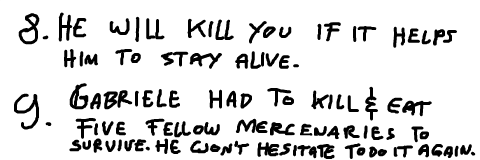 8. HE WILL KILL YOU IF IT HELPS
HIM TO STAY ALIVE.
9. GABRIELE HAD TO KILL & EAT
FIVE FELLOW MERCENARIES TO
SURVIVE. HE WON'T HESITATE TO DO IT AGAIN.